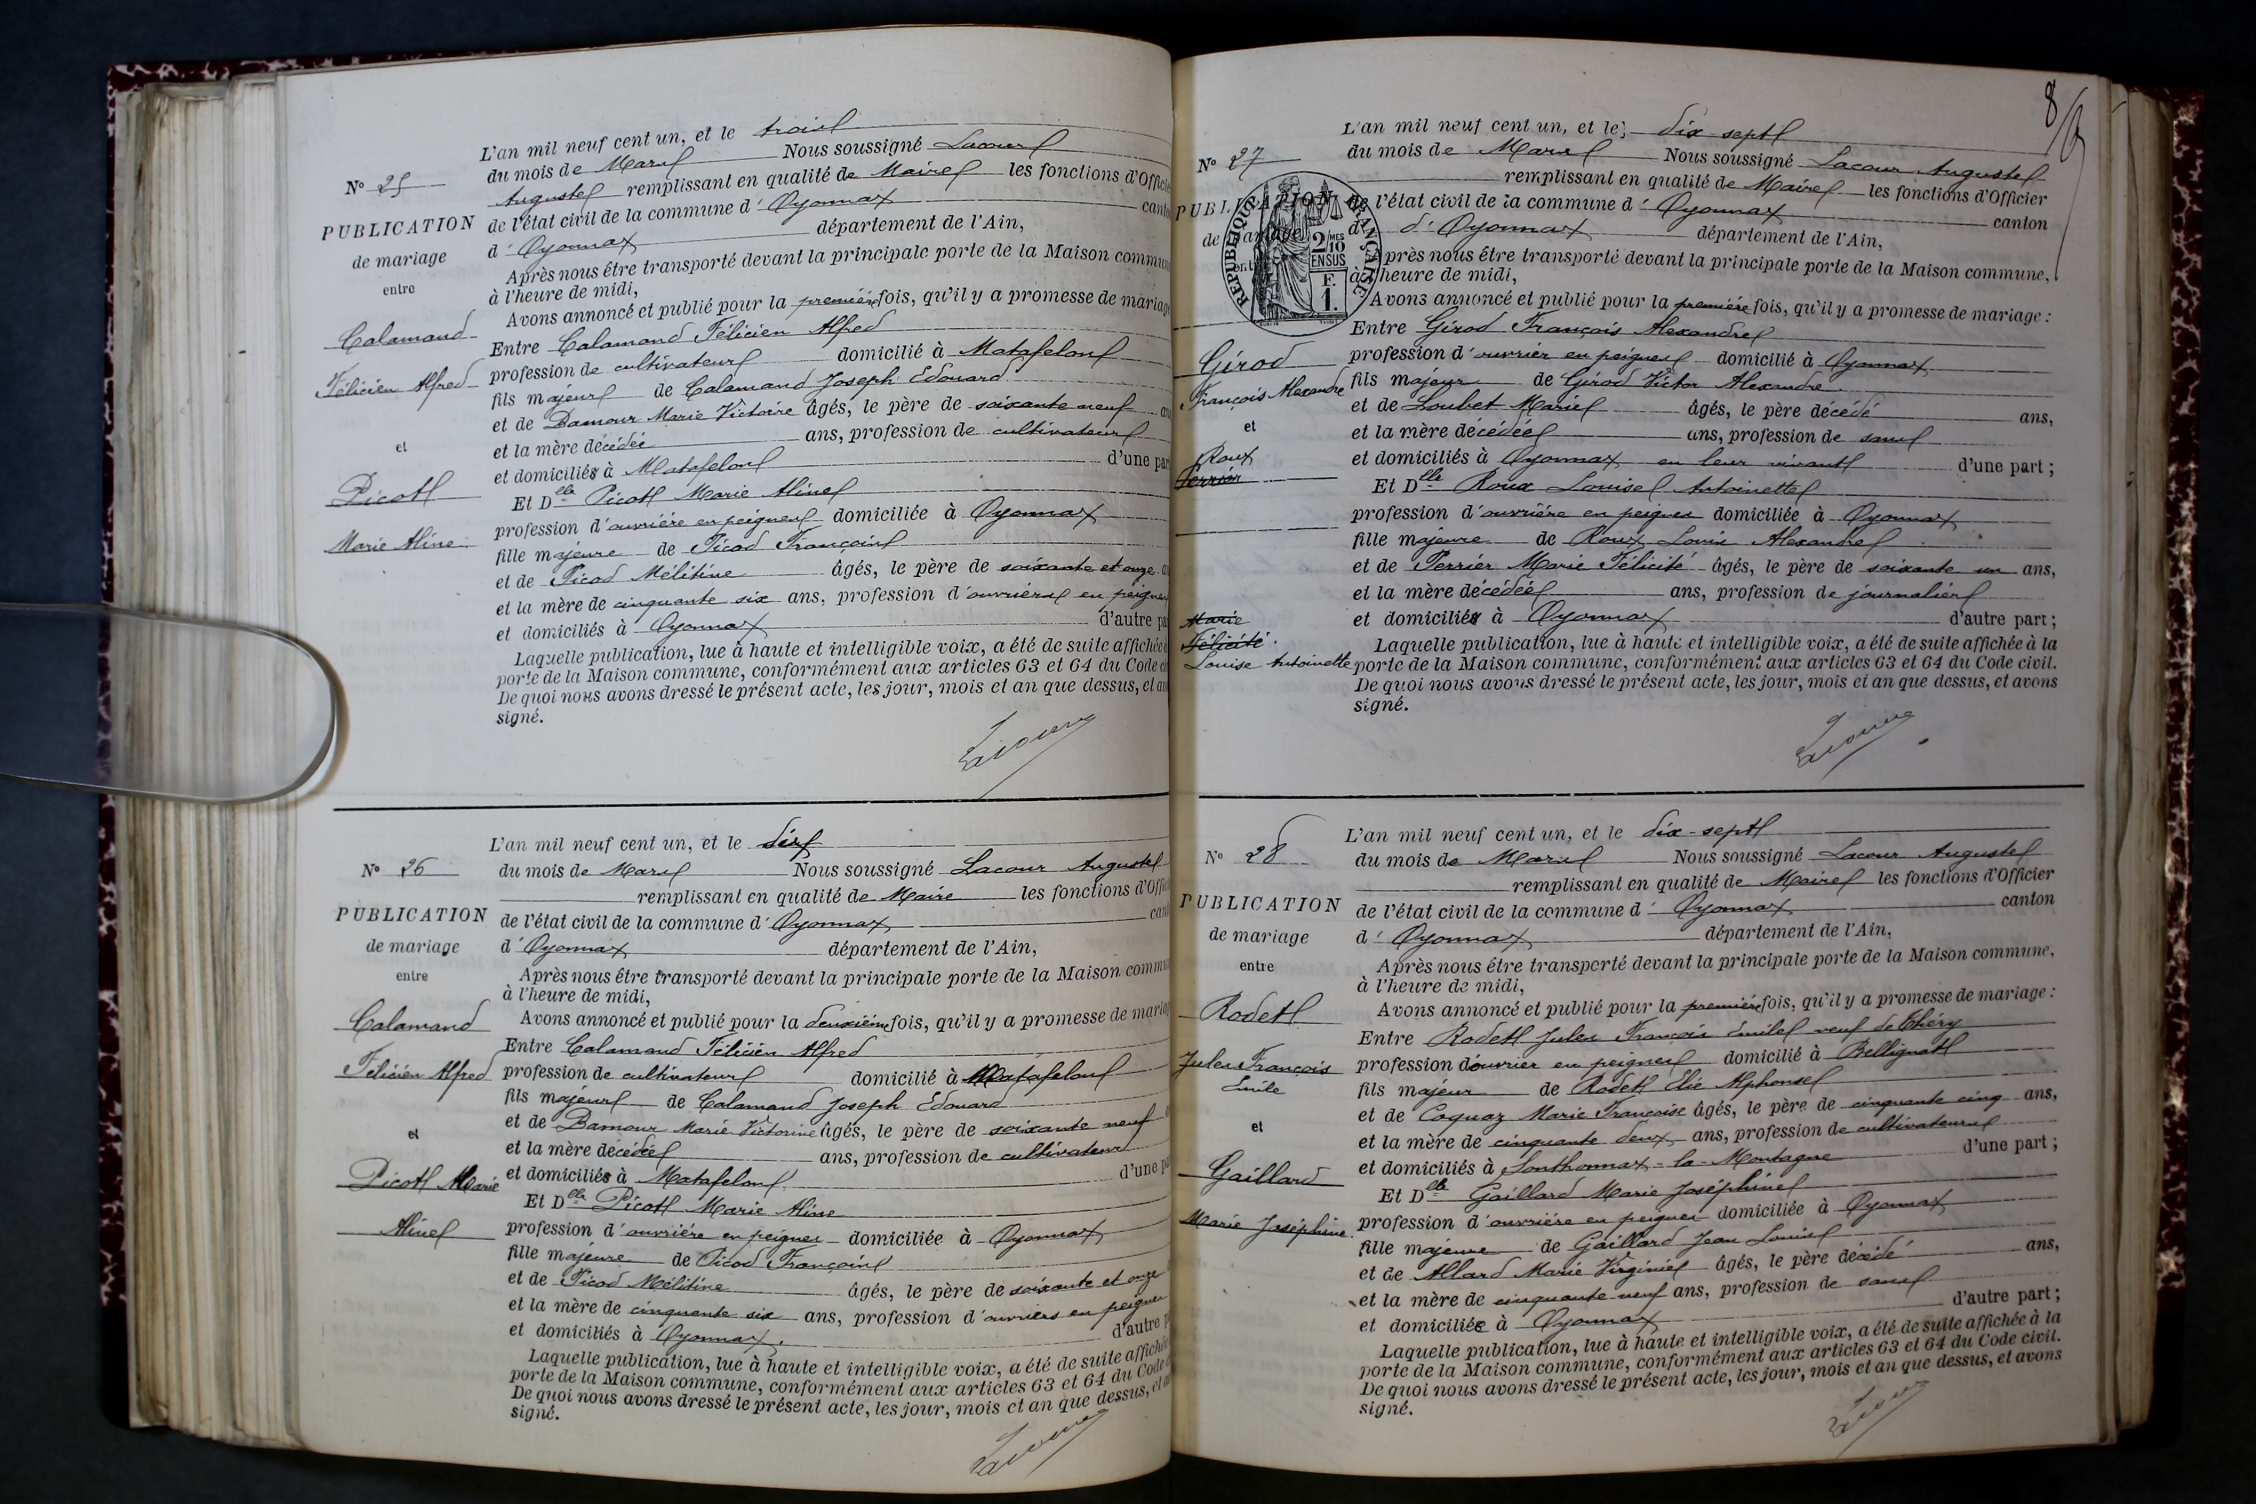 L'an mil neuf cent un, et le trois
du mois de Mars Nous soussigné Lacour
Auguste remplissant en qualité de Maire les fonctions d'Officie
de l'état civil de la commune d' Oyonnax cant
d' Oyonnax département de l'Ain,
Après nous être transporté devant la principale porte de la Maison commun
à l'heure de midi,
Avons annoncé et publié pour la première fois, qu'il y a promesse de mariage
Entre Calamand Félicien Alfred
profession de cultivateur domicilié à Matafelon
fils majeur de Calamand Joseph Edouard
et de Damour Marie Victoire âgés, le père de soixante neuf an
et la mère décédée ans, profession de cultivateur
et domiciliés à Matafelon d'une par
Et Dlle Picot Marie Aline
profession d'ouvrière en peignes domiciliée à Oyonnax
fille majeure de Picod François
et de Picod Mélitine âgés, le père de soixante et onze a
et la mère de cinquante six ans, profession d'ouvriers en peignes
et domiciliés à Oyonnax d'autre pa
Laquelle publication, lue à haute et intelligible voix, a été de suite affichée à
porte de la Maison commune, conformément aux articles 63 et 64 du Code c
De quoi nous avons dressé le présent acte, les jour, mois et an que dessus, et av
signé.
Lacour
No 25
PUBLICATION
de mariage
entre
Calamand
Félicien Alfred
et
Picot
Marie Aline
L'an mil neuf cent un, et le dix
du mois de Mars Nous soussigné Lacour Auguste
remplissant en qualité de Maire les fonctions d'Offic
de l'état civil de la commune d' Oyonnax cant
d' Oyonnax département de l'Ain,
Après nous être transporté devant la principale porte de la Maison commu
à l'heure de midi,
Avons annoncé et publié pour la deuxième fois, qu'il y a promesse de maria
Entre Calamand Félicien Alfred
profession de cultivateur domicilié à Matafelon
fils majeur de Calamand Joseph Edouard
et de Damour Marie Victorine âgés, le père de soixante neuf
et la mère décédée ans, profession de cultivateur
et domiciliés à Matafelon d'une pa
Et Dlle Picot Marie Aline
profession d'ouvrière en peignes domiciliée à Oyonnax
fille majeure de Picod François
et de Picod Mélitine âgés, le père de soixante et onze
et la mère de cinquante six ans, profession d'ouvriers en peignes
et domiciliés à Oyonnax. d'autre p
Laquelle publication, lue à haute et intelligible voix, a été de suite affiché
porte de la Maison commune, conformément aux articles 63 et 64 du Code c
De quoi nous avons dressé le présent acte, les jour, mois et an que dessus, et a
signé.
Lacour
No 26
PUBLICATION
de mariage
entre
Calamand
Félicien Alfred
et
Picot Marie
Aline
8
L'an mil neuf cent un, et le dix-sept
du mois de Mars Nous soussigné Lacour Auguste
remplissant en qualité de Maire les fonctions d'Officier
de l'état civil de la commune d' Oyonnax canton
d' Oyonnax département de l'Ain,
Après nous être transporté devant la principale porte de la Maison commune,
à l'heure de midi,
Avons annoncé et publié pour la première fois, qu'il y a promesse de mariage :
Entre Girod François Alexandre
profession d'ouvrier en peignes domicilié à Oyonnax
fils majeur de Girod Victor Alexandre
et de Loubet Marie âgés, le père décédé ans,
et la mère décédée ans, profession de sans
et domiciliés à Oyonnax en leur vivant d'une part ;
Et Dlle Roux Louise Antoinette
profession d'ouvrière en peignes domiciliée à Oyonnax
fille majeure de Roux Louis Alexandre
et de Perrier Marie Félicité âgés, le père de soixante un ans,
et la mère décédée ans, profession de journalier
et domiciliés à Oyonnax d'autre part ;
Laquelle publication, lue à haute et intelligible voix, a été de suite affichée à la
porte de la Maison commune, conformément aux articles 63 et 64 du Code civil.
De quoi nous avons dressé le présent acte, les jour, mois et an que dessus, et avons
signé.
Lacour
No 27
PUBLICATION
de mariage
ent
RÉPUBLIQUE FRANÇAISE
2/10
MES
EN SUS
F.
1.
Girod
François Alexandre
et
Roux
Perrier
Marie
Félicité
Louise Antoinette
L'an mil neuf cent un, et le dix-sept
du mois de Mars Nous soussigné Lacour Auguste
remplissant en qualité de Maire les fonctions d'Officier
de l'état civil de la commune d' Oyonnax canton
d' Oyonnax département de l'Ain,
Après nous être transporté devant la principale porte de la Maison commune,
à l'heure de midi,
Avons annoncé et publié pour la première fois, qu'il y a promesse de mariage :
Entre Rodet Jules François Emile veuf de Théry
profession d'ouvrier en peignes domicilié à Bellignat
fils majeur de Rodet Elie Alphonse
et de Coquaz Marie Françoise âgés, le père de cinquante cinq ans,
et la mère de cinquante deux ans, profession de cultivateurs
et domiciliés à Sonthonnax-la-Montagne d'une part ;
Et Dlle Gaillard Marie Joséphine
profession d'ouvrière en peignes domiciliée à Oyonnax
fille majeure de Gaillard Jean Louis
et de Allard Marie Virginie âgés, le père décédé ans,
et la mère de cinquante neuf ans, profession de sans
et domiciliée à Oyonnax d'autre part ;
Laquelle publication, lue à haute et intelligible voix, a été de suite affichée à la
porte de la Maison commune, conformément aux articles 63 et 64 du Code civil.
De quoi nous avons dressé le présent acte, les jour, mois et an que dessus, et avons
signé.
Lacour
No 28
PUBLICATION
de mariage
entre
Rodet
Jules François
Emile
et
Gaillard
Marie Joséphine